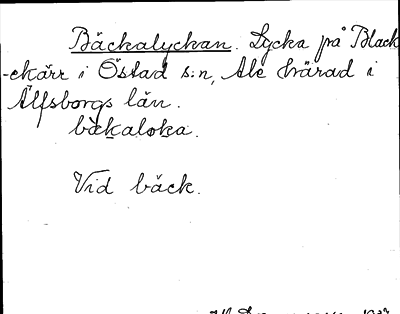 Bäckalyckan. Lycka på Black
-ekärr i Östad s:n, Ale härad i
Älfsborgs län.
bäkaloka.
Vid bäck.